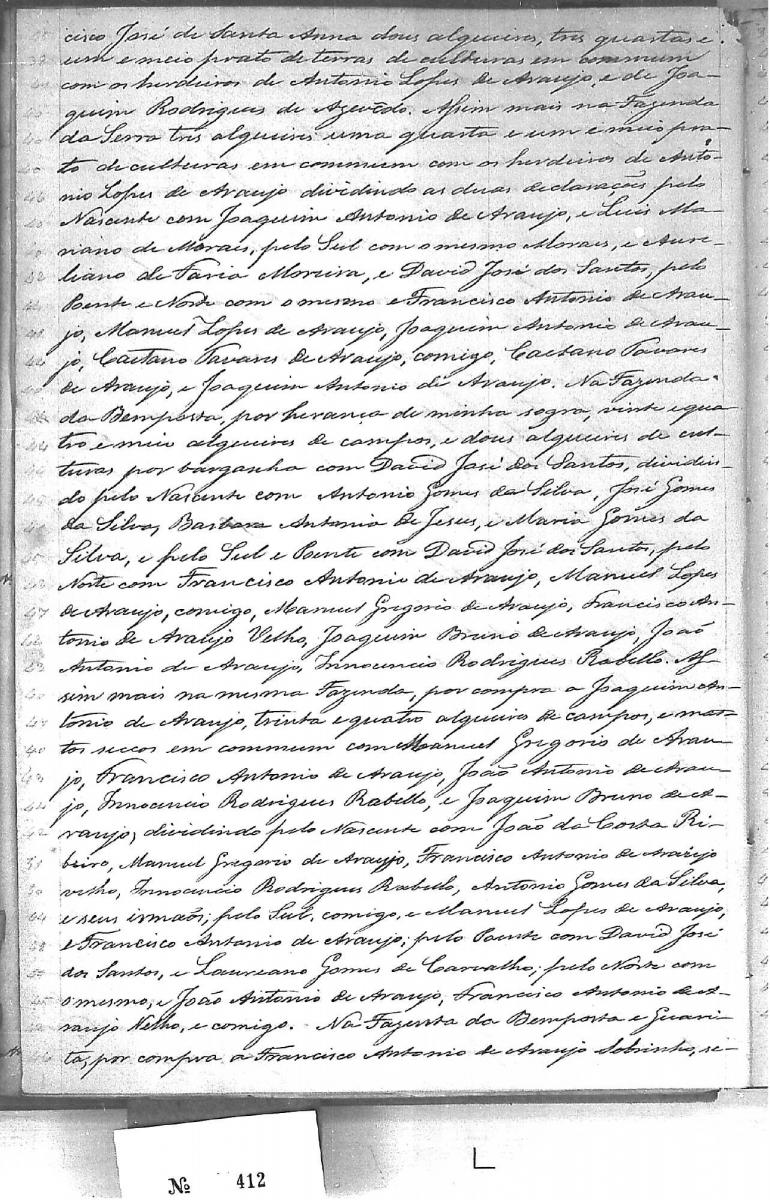 cisco José de Santa Anna dous alqueires, tres quartas e
um e meio prato de terras de culturas em commum
com os herdeiros de Antonio Lopes de Araujo, e de Joa-
quim Rodrigues de Azevêdo. Assim mais na Fazenda
da Serra tres alqueires uma quarta e um e meio pra-
to de culturas em commum com os herdeiros de Anto-
nio Lopes de Araujo dividindo as duas declarações pelo
Nascente com Joaquim Antonio de Araujo, e Luis Ma-
riano de Moraes, pelo Sul com o mesmo Moraes, e Aure-
liano de Faria Moreira, e David José dos Santos, pelo
Poente e Norte com o mesmo e Francisco Antonio de Arau-
jo, Manuel Lopes de Araujo, Joaquim Antonio de Arau-
jo, Caetano Tavares de Araujo, comigo, Caetano Tavares
de Araujo, e Joaquim Antonio de Araujo. Na Fazenda
da Bemposta, por herança de minha sogra, vinte e qua-
tro e meio alqueires de campos, e dous alqueires de cul-
turas por barganha com David José dos Santos, dividin-
do pelo Nascente com Antonio Gomes da Silva, José Gomes
da Silva, Barbara Antonia de Jesus, e Maria Gomes da
Silva, e pelo Sul e Poente com David José dos Santos, pelo
Norte com Francisco Antonio de Araujo, Manuel Lopes
de Araujo, comigo, Manuel Gregorio de Araujo, Francisco An-
tonio de Araujo Velho, Joaquim Bruno de Araujo, João
Antonio de Araujo, Innocencio Rodrigues Rabello. As-
sim mais na mesma Fazenda, por compra a Joaquim An-
tonio de Araujo, trinta e quatro alqueires de campos, e mat-
tos seccos em commum com Manuel Gregorio de Arau-
jo, Francisco Antonio de Araujo, João Antonio de Arau-
jo, Innocencio Rodrigues Rabello, e Joaquim Bruno de A-
raujo, dividindo pelo Nascente com João da Costa Ri-
beiro, Manuel Gregorio de Araujo, Francisco Antonio de Araujo
velho, Innocencio Rodrigues Rabello, Antonio Gomes da Silva,
e seus irmãos; pelo Sul, comigo, e Manuel Lopes de Araujo,
e Francisco Antonio de Araujo; pelo Poente com David José
dos Santos, e Laureano Gomes de Carvalho; pelo Norte com
o mesmo, e João Antonio de Araujo, Francisco Antonio de A-
raujo Velho, e comigo. Na Fazenda da Bemposta e Guari-
ta, por compra a Francisco Antonio de Araujo Sobrinho, se-
Nº 412